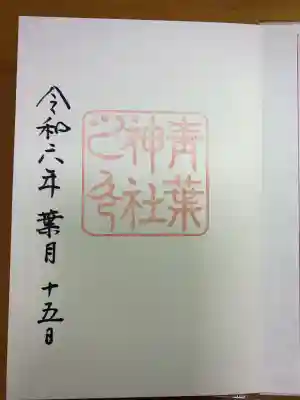 青葉
神社
之印
令和六年 葉月 十五日